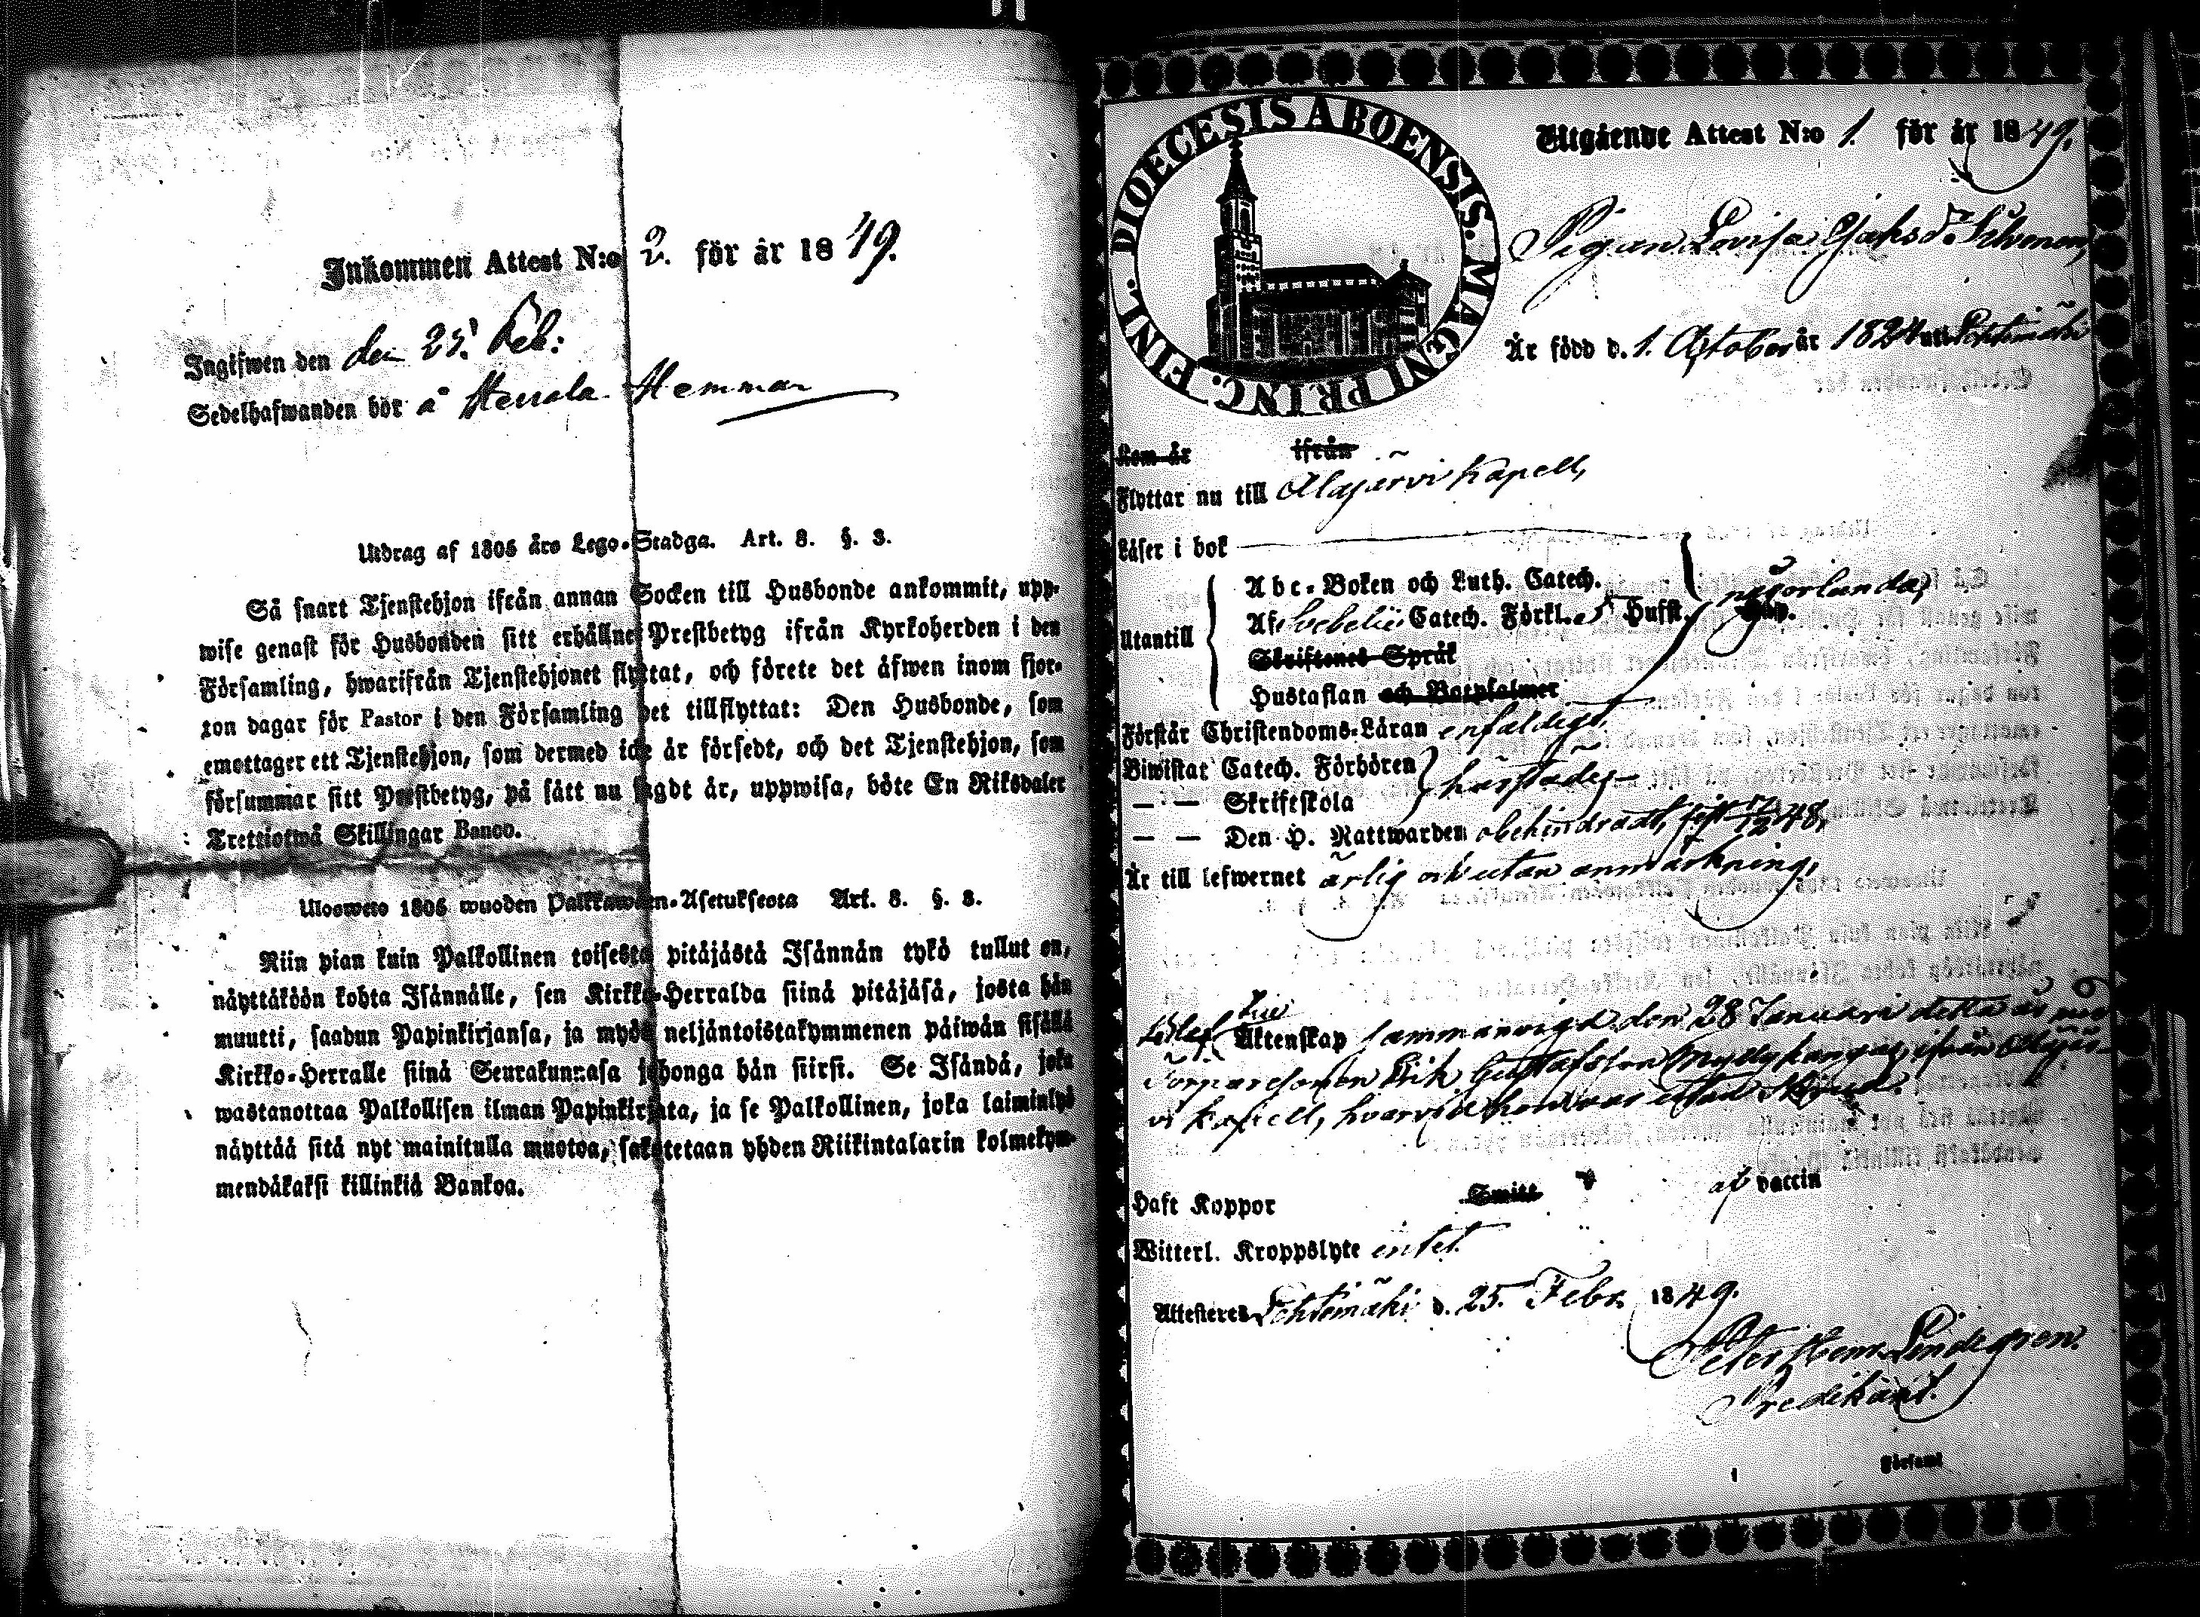 Inkommen Attest N:o 2. för år 1849.
Ingifwen den den 25. Feb:
Sedelhafwanden bör å Herrala Hemman
Utdrag af 1805 års Lego-Stadga. Art. 8. §. 3.
Så snart Tjenstehjon ifrån annan Socken till Husbonde ankommit, upp-
wise genast för Husbonden sitt erhållne Prestbetyg ifrån Kyrkoherden i den
Församling, hwarifrån Tjenstehjonet flyttat, och förete det äfwen inom fjor-
ton dagar för Pastor i den Församling det tillflyttat: Den Husbonde, som
emottager ett Tjenstehjon, som dermed icke är försedt, och det Tjenstehjon, som
försummar sitt Prestbetyg, på sätt nu sagdt är, uppwisa, böte En Riksdaler
Trettiotwå Skillingar Banco.
Ulosweto 1805 wuoden Palkkawäen-Asetuksesta Art. 8. §. 3.
Niin pian kuin Palkollinen toisesta pitäjästä Isännän tykö tullut on,
näyttäköön kohta Isännälle, sen Kirkko-Herralda siinä pitäjäsä, josta hän
muutti, saadun Papinkirjansa, ja myös neljäntoistakymmenen päiwän sisällä
Kirkko-Herralle siinä Seurakunnasa johonga hän siirsi. Se Isändä, joka
wastanottaa Palkollisen ilman Papinkirjata, ja se Palkollinen, joka laiminlyö
näyttää sitä nyt mainitulla muotoa, sakotetaan yhden Riikintalarin kolmekym-
mendäkaksi killinkiä Bankoa.
DIOECESIS ABOENSIS. MAGNI PRINC. FINL.
Utgående Attest N:o 1. för år 1849.
Pigan Lovisa Jaksd. Silvonen,
Är född d. 1. October år 1824 uti Lehtimäki
Kom år ifrån
Flyttar nu till Alajärvi Kapell,
Läser i bok
Utantill
Abc-Boken och Luth. Catech.
Af Svebelii Catech. Förkl. 5 Hufst. någorlunda,
Skriftenes Språk
Hustaflan och Botpsalmer
Förstår Christendoms-Läran enfaldigt,
Biwistat Catech. Förhören
— — Skriftskola
— — Den H. Nattwarden obehindradt, sist 17/12 48,
Är till lefwernet ärlig och utan anmärkning,
Äktenskap sammanvigd den 28 Januari detta år med
Torparesonen Erik Gustafsson Myllykangas ifrån Alajär-
vi Kapell, hvarvid hon var utan
Haft Koppor Smitt af vaccin
Witterl. Kroppslyte intet.
Attesteres Lehtimäki d. 25. Febr. 1849.
Peter Henr. Lindegren.
Predikant.
Församl